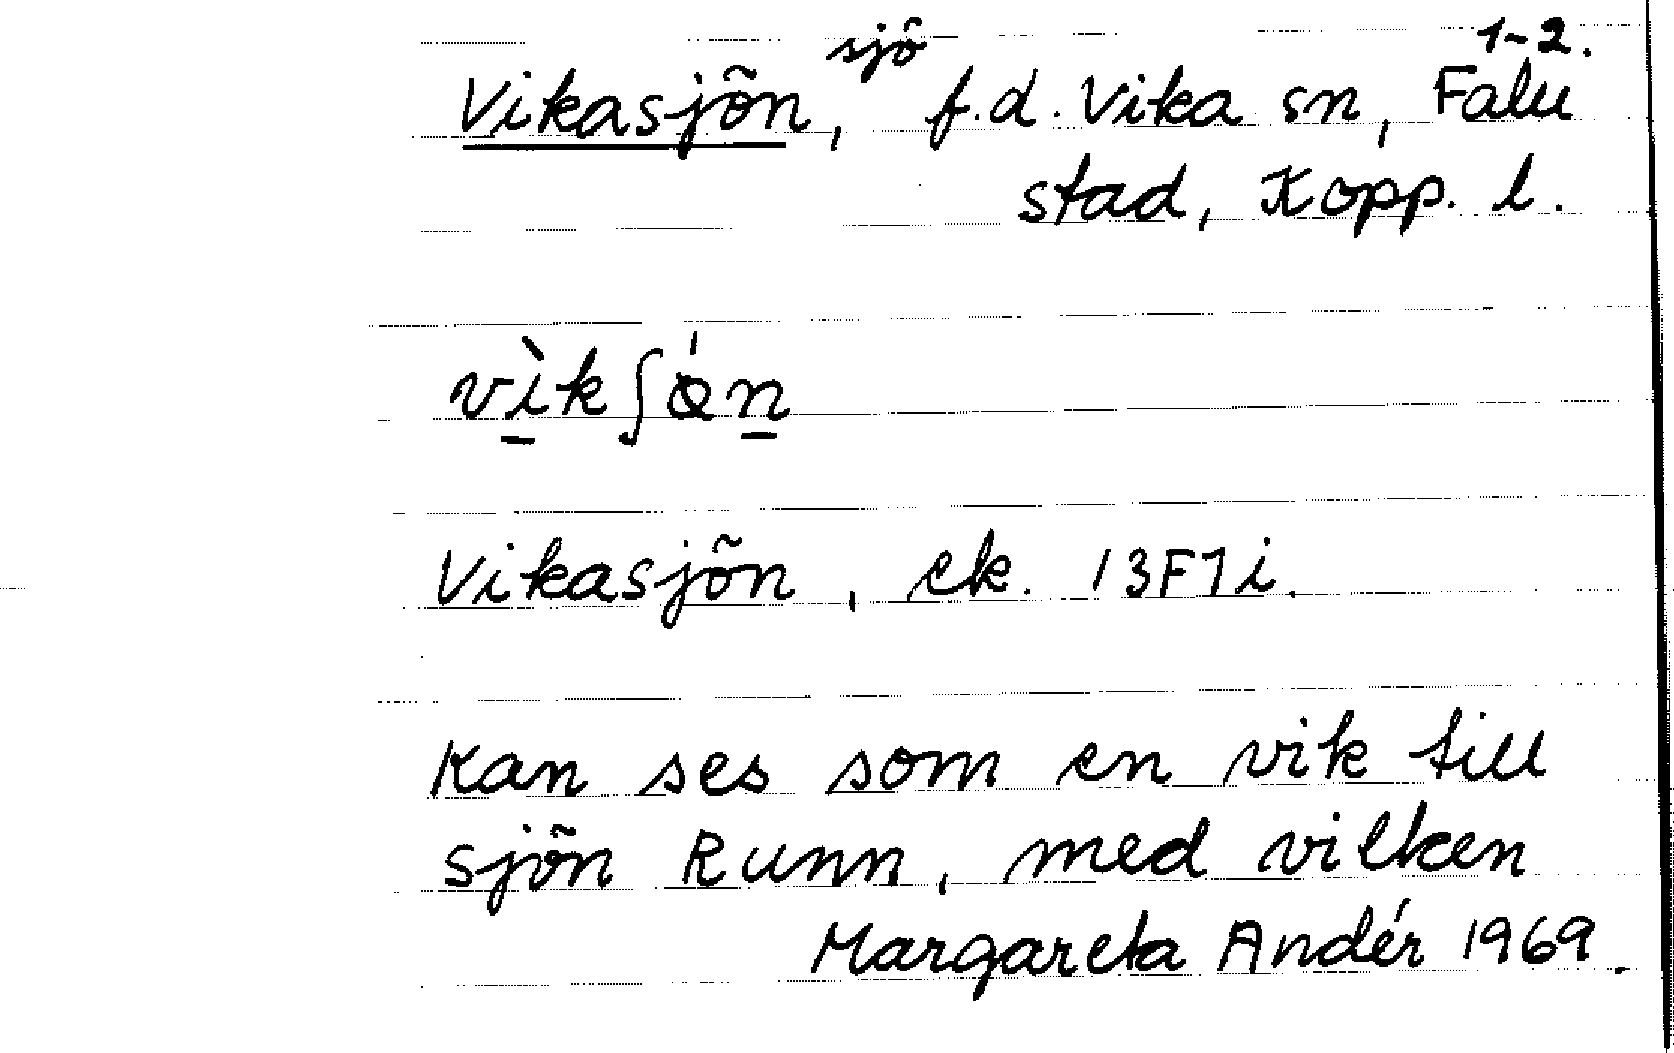 1-2.
Vikasjön, sjö f.d. Vika sn, Falu
stad, Kopp. l.
vìkʃǿn
Vikasjön, ek. 13F7i.
Kan ses som en vik till
sjön Runn, med vilken
Margareta Andér 1969.